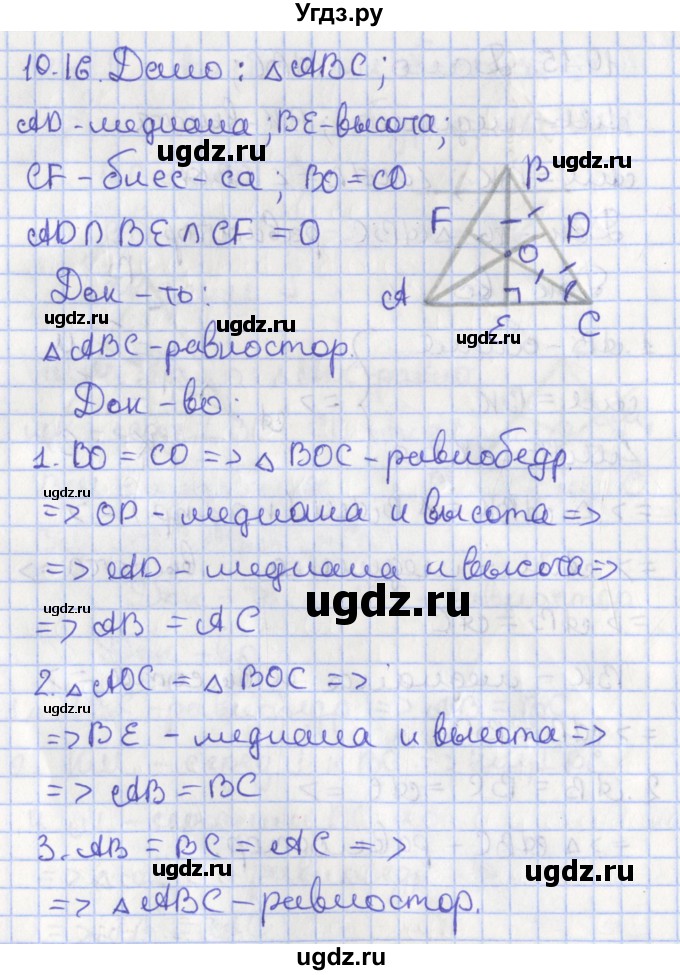 Угдз.ру
10.16. Дано: △ABC;
AD - медиана; BE - высота;
ugdz.ru
ugdz.ru
CF - бисс-са; BO = CO
AD ∩ BE ∩ CF = O
B
F
D
O
A
E
C
Док-ть:
ugdz.ru
ugdz.ru
ugdz.ru
△ABC - равностор.
Док-во:
1. BO = CO => △BOC - равнобедр.
ugdz.ru
=> OD - медиана и высота =>
=> AD - медиана и высота =>
ugdz.ru
ugdz.ru
=> AB = AC
2. △AOC = △BOC =>
ugdz.ru
=> BE - медиана и высота =>
=> AB = BC
ugdz.ru
3. AB = BC = AC =>
ugdz.ru
=> △ABC - равностор.
ugdz.ru
Угдз.ру